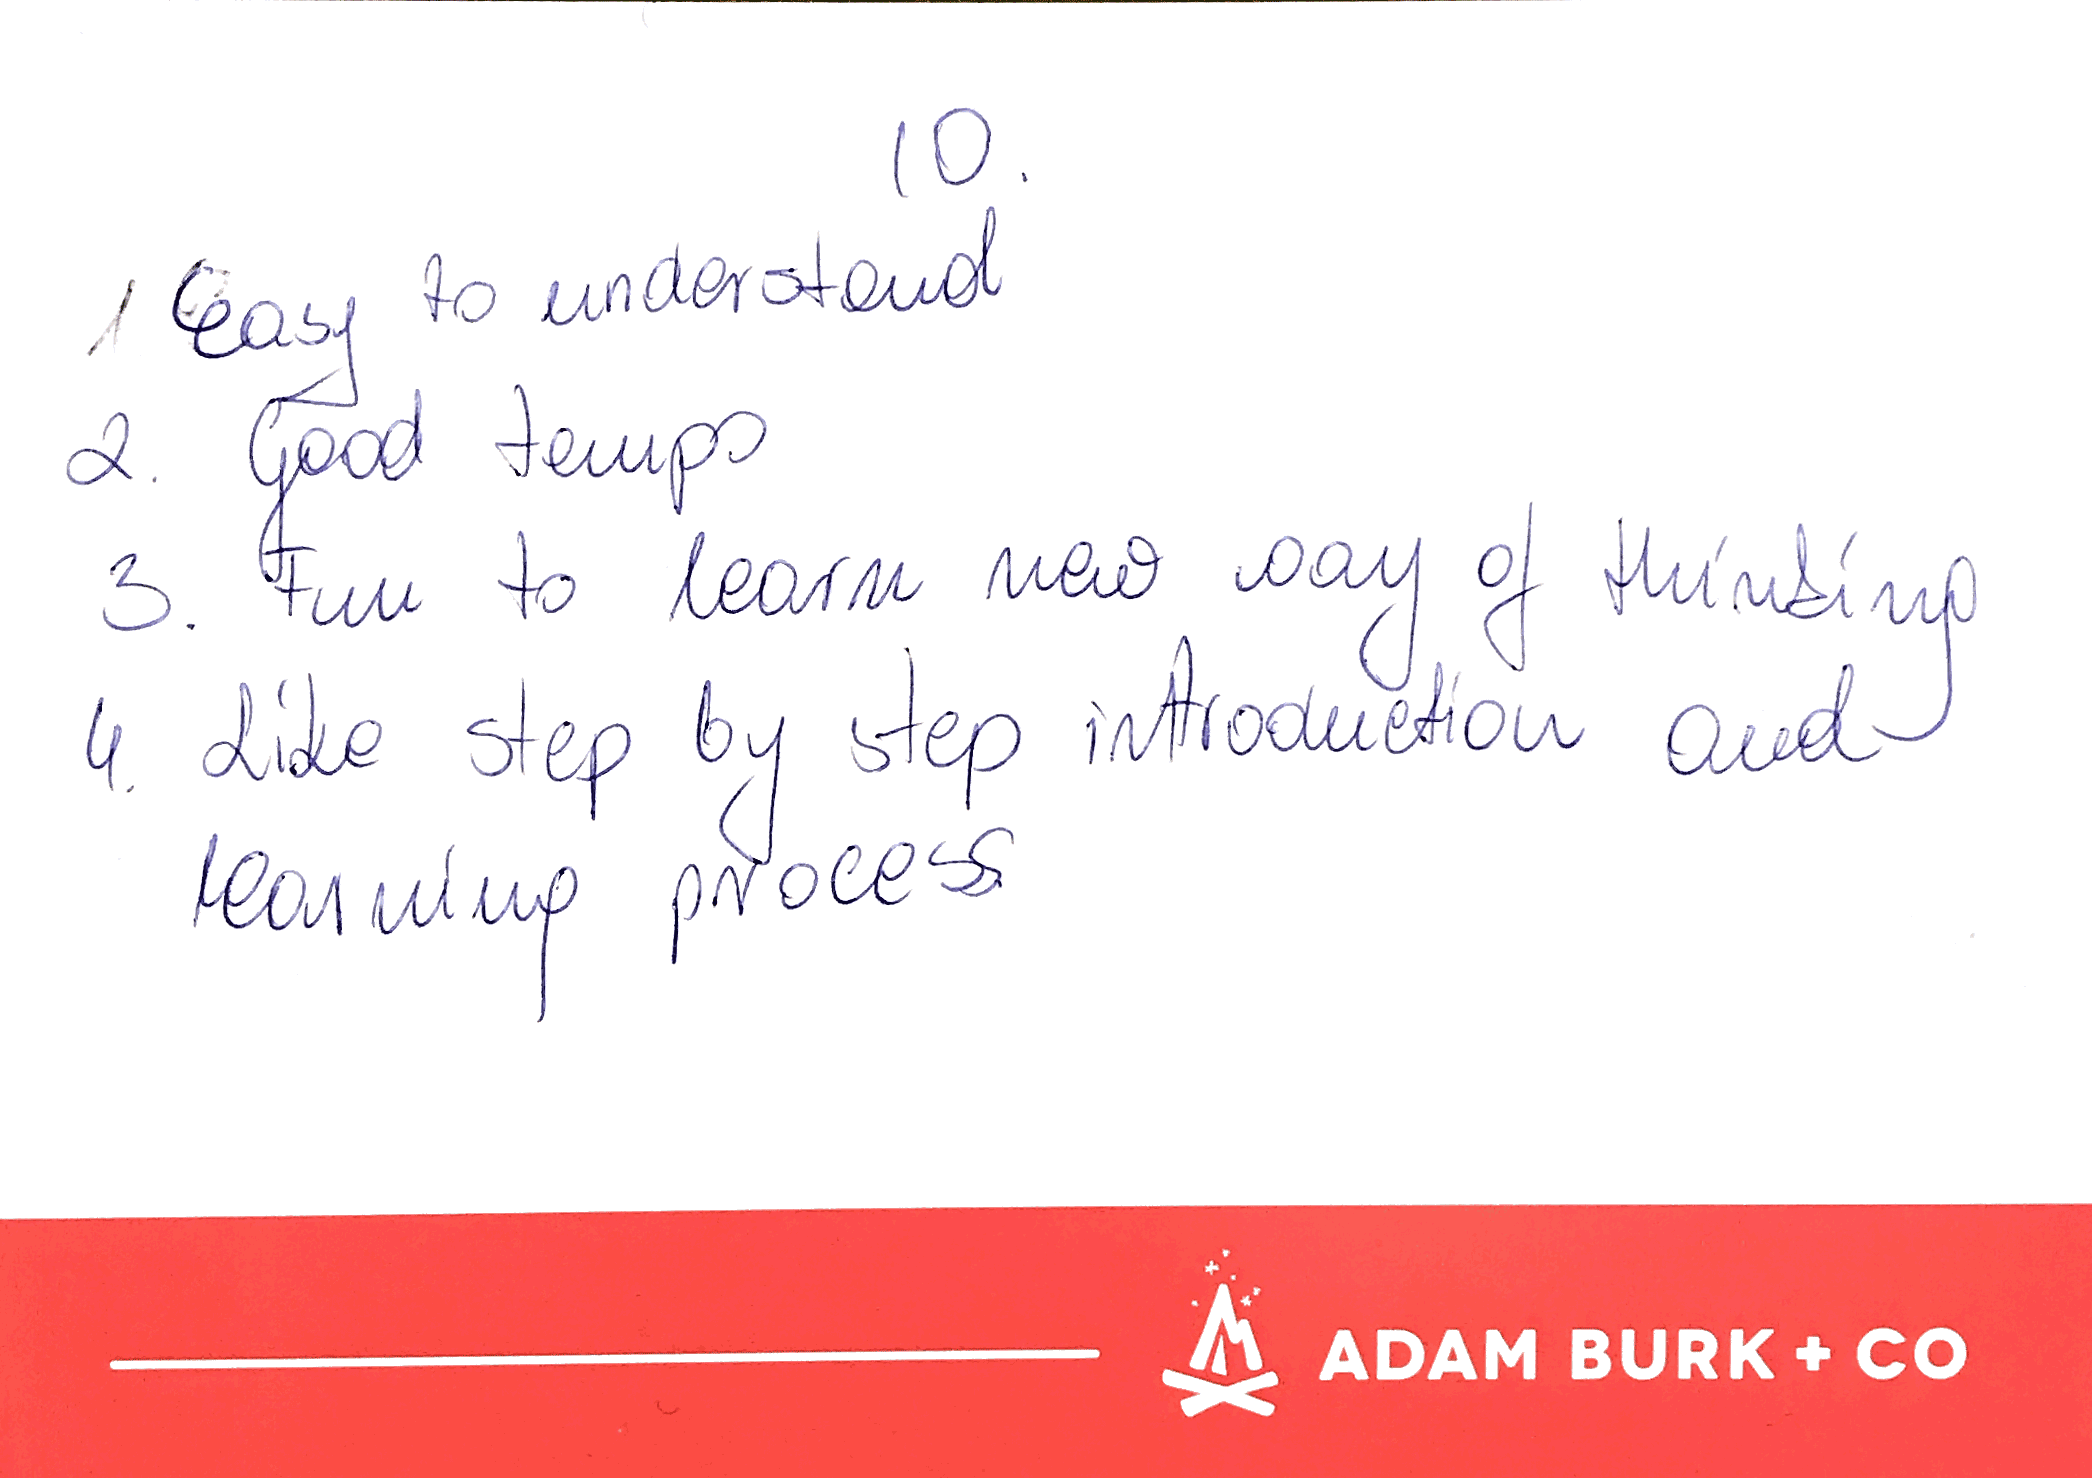 10.
1 Easy to understand
2. Good tempo
3. Fun to learn new way of thinking
4. Like step by step introduction and
learning process
ADAM BURK + CO